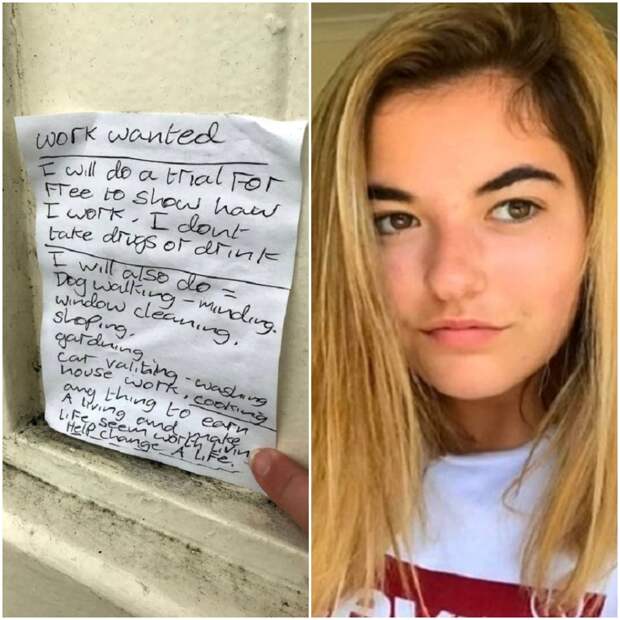 work wanted
I will do a trial For
Free to show haw
I work. I dont
take drugs or drink
I will also do =
Dog walking - minding.
window cleaning.
shoping.
gardning
car valiting - washing
house work, cooking
any thing to earn
A living and make
Life seem worth livin
Help change A life.